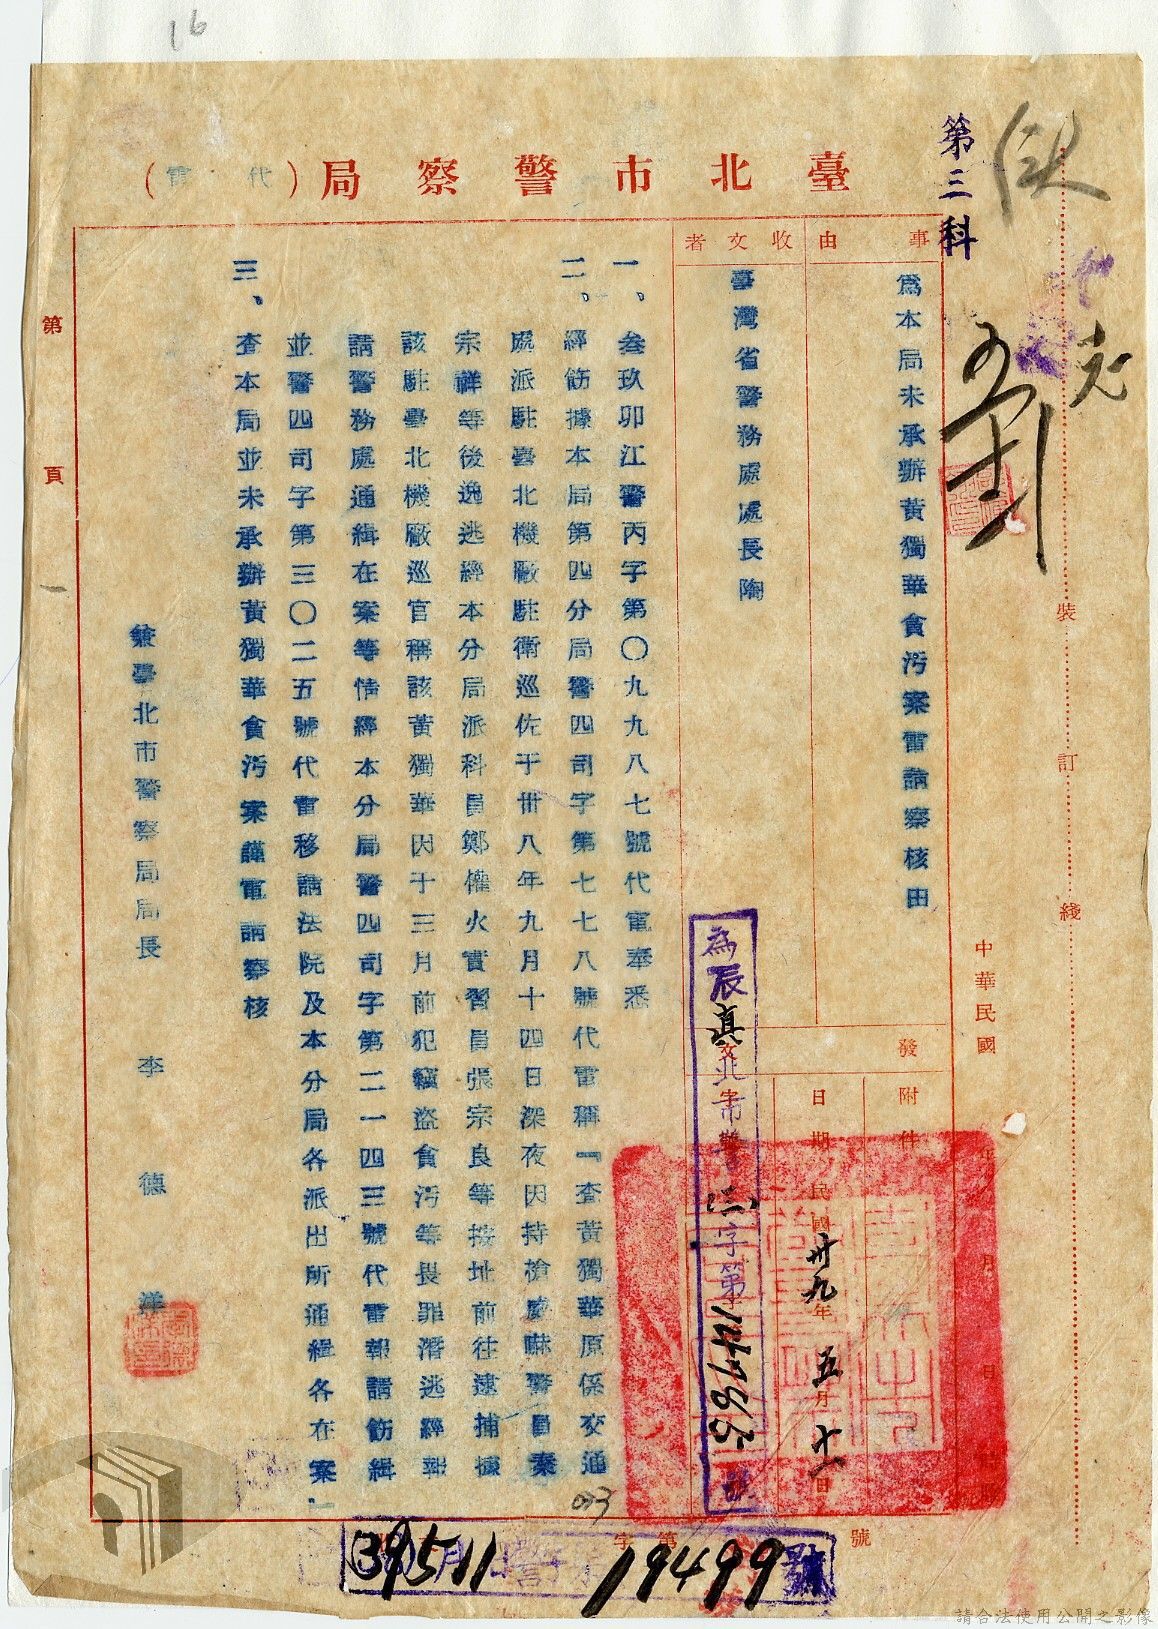 16
臺北市警察局（代電）
第三科
事由
為本局未承辦黃獨華貪污案電請察核由
收文者
臺灣省警務處處長陶
中華民國
發
附件
日期
民國卅九年五月十一日
為辰真北市警三字第14765號
一、叁玖卯江警丙字第〇九九八七號代電奉悉
二、經飭據本局第四分局警四司字第七七八號代電稱「查黃獨華原係交通
處派駐臺北機廠駐衛巡佐于卅八年九月十四日深夜因持槍威嚇警員秦
宗祥等後逸逃經本分局派科員鄭權火實習員張宗良等按址前往逮捕據
該駐臺北機廠巡官稱該黃獨華因于三月前犯竊盜貪污等畏罪潛逃經報
請警務處通緝在案等情經本分局警四司字第二一四三號代電報請飭緝
並警四司字第三〇二五號代電移請法院及本分局各派出所通緝各在案」
三、查本局並未承辦黃獨華貪污案謹電請察核
兼臺北市警察局局長 李德洋
第頁
裝訂綫
字第號
39511
19499號
請合法使用公開之影像